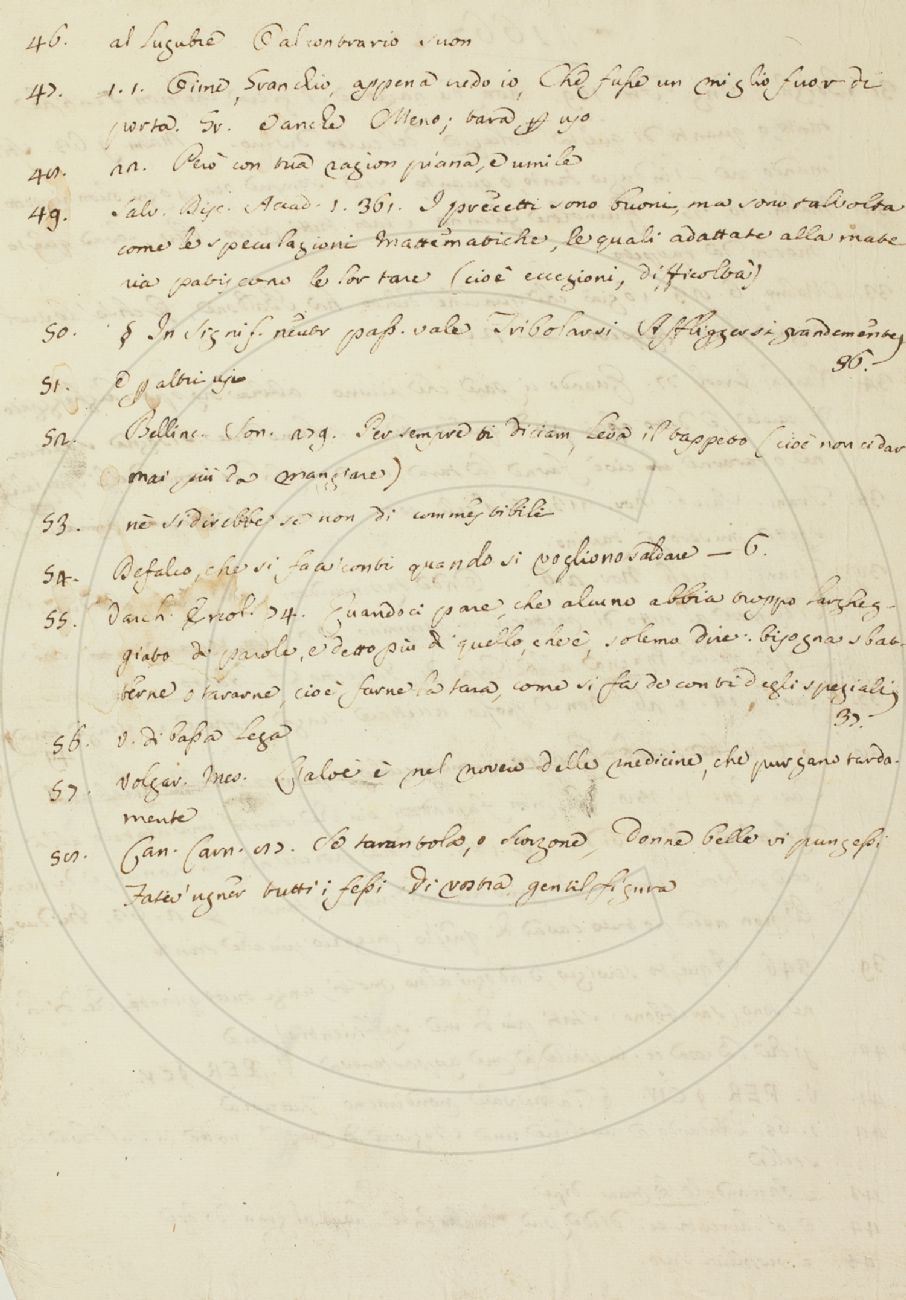 46. al lugubre è al contrario suon
47. 1. 1. Oimè, Granchio, appena credo io, Che fusse un miglio fuor di
porta. Gr. E anche Meno; tara p uso
48. 22. Però con tua ragion piana, e umile
49. Salv. Disc. Accad. 1. 361. I precetti sono buoni, ma sono talvolta
come le speculazioni Mattematiche, le quali adattate alla mate-
ria patiscono le lor tare (cioè eccezioni, difficoltà)
50. § In signif. neutr pass. vale Tribolarsi Affliggersi grandemente
36.
51. e p altri usi
52. Bellinc. Son. 279. Per sempre ti diciam, leva il tappeto (cioè non ci dar
mai più da mangiare)
53. nè si direbbe se non di commestibili
54. Defalco, che si fa a' conti quando si vogliono saldare — 6.
55. Varch. Ercol. 74. Quando ci pare, che alcuno abbia troppo largheg-
giato di parole, e detto più di quello, che è, solemo dire: bisogna sbat-
terne o tararne, cioè farne la tara, come si fa de conti degli speziali
37.
56. v. di bassa lega
57. Volgar. Mes. L'aloè è nel novero delle medicine, che purgano tarda-
mente
58. Can. Carn. 57. Se tarantola, o scorzone, Donne belle vi pungessi
Fatev' ugner tutti i fessi Di vostra gentil figura